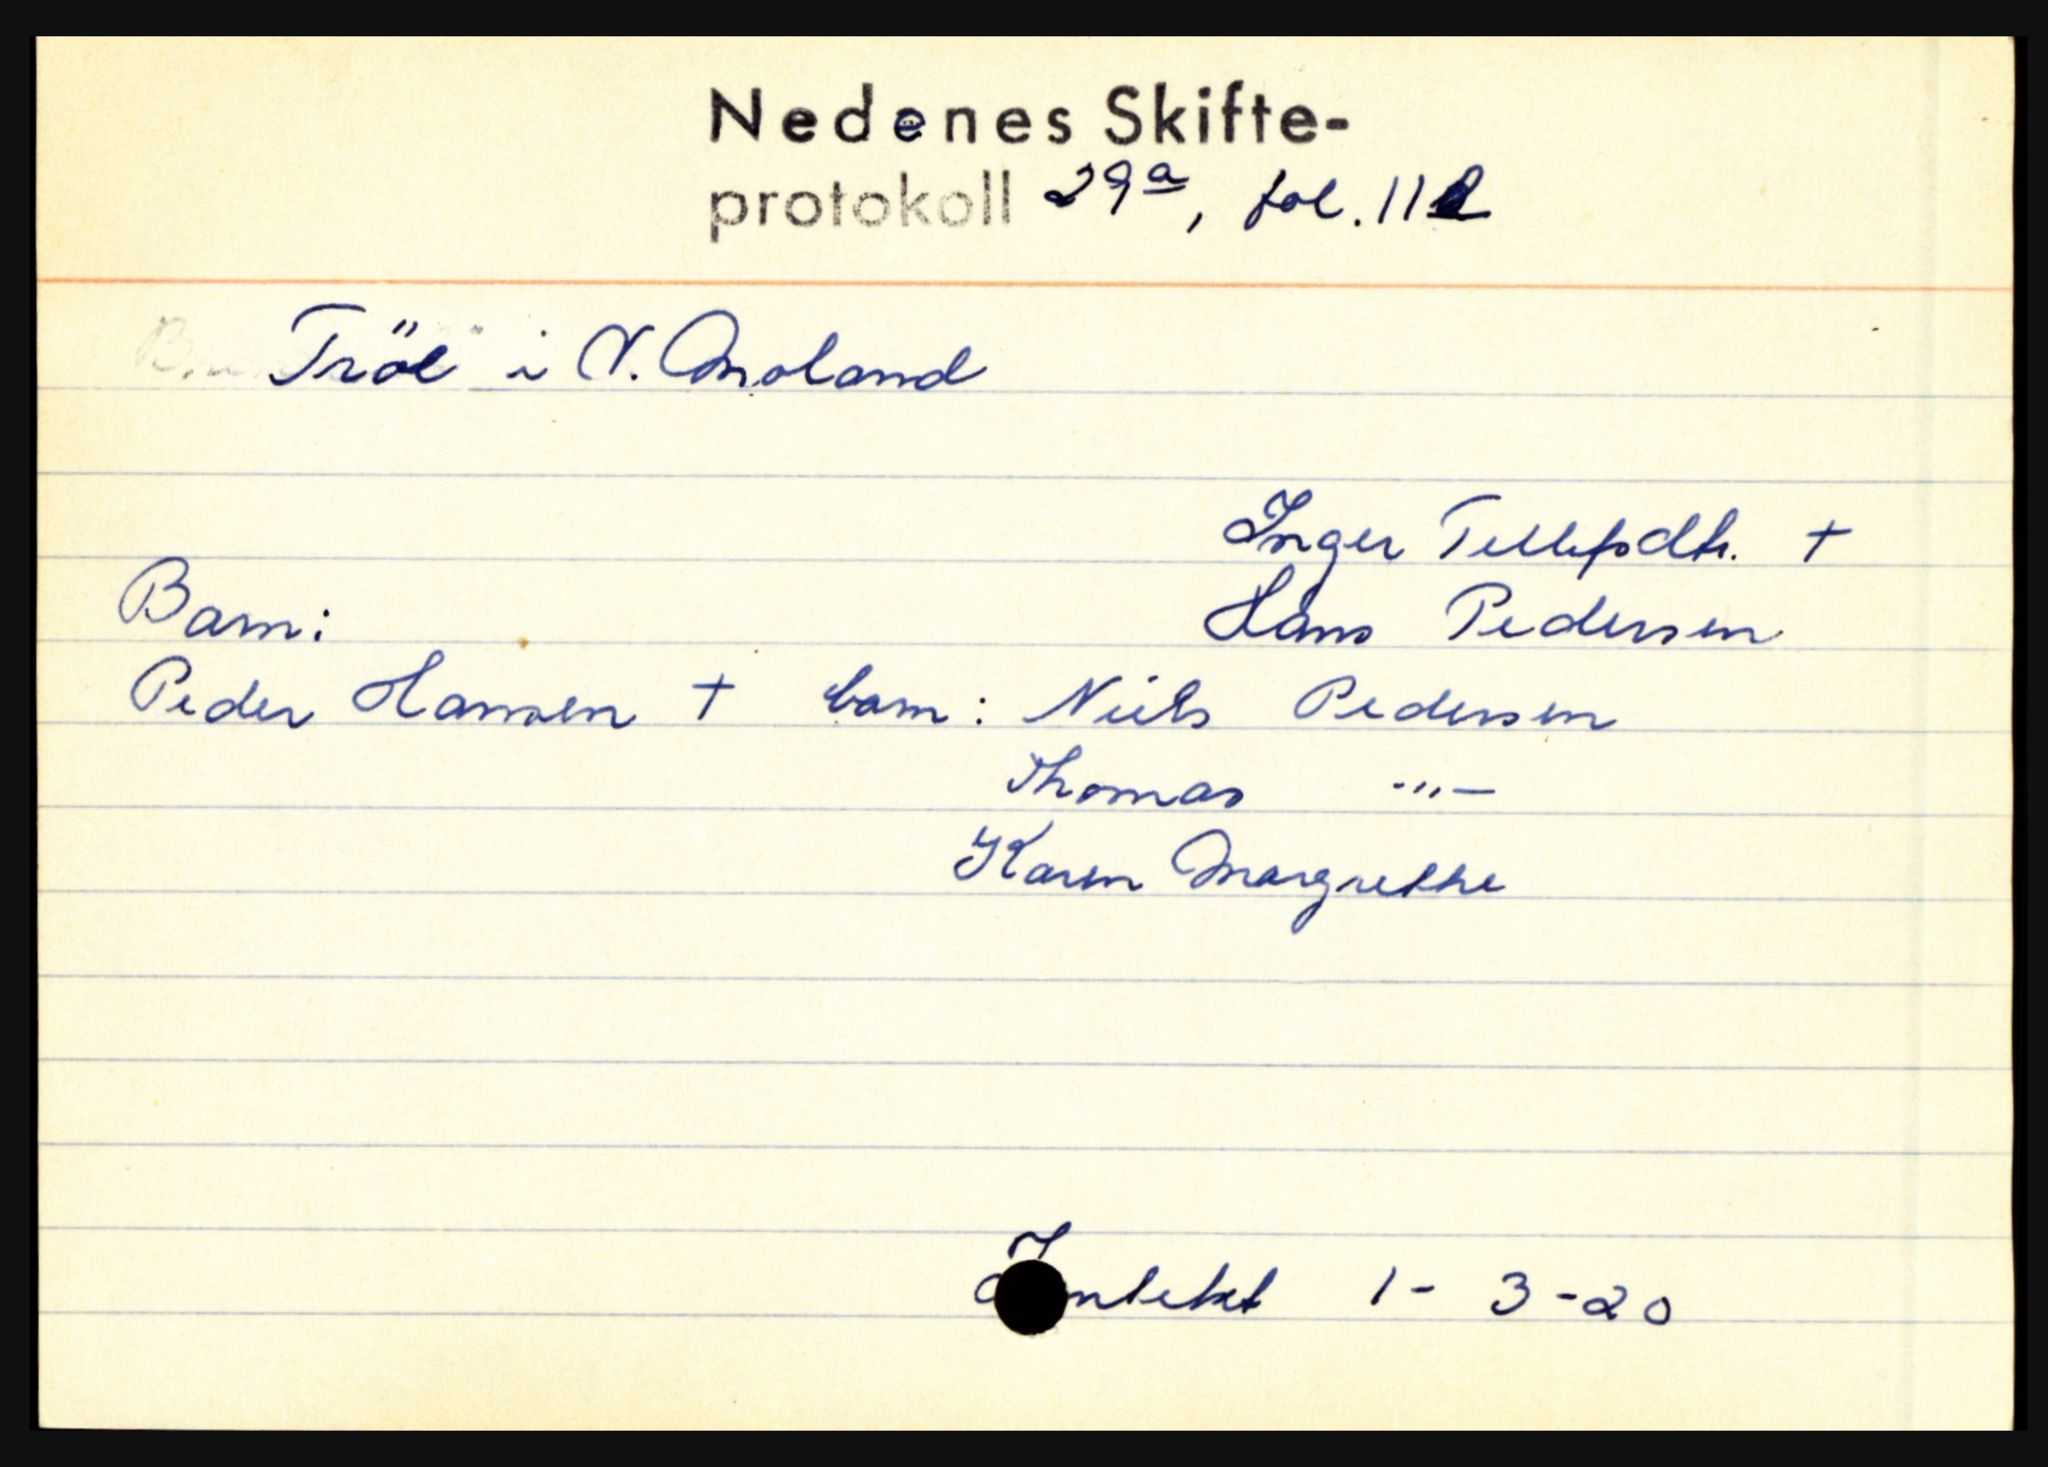 Nedenes Skifte-
protokoll 29a, fol. 112
Tröe i N. Moland
Inger Tellefsdtr. †
Barn:
Hans Pedersen
Peder Hansen † barn: Niels Pedersen
Thomas -"-
Karen Margrethe
Inntekt 1-3-20